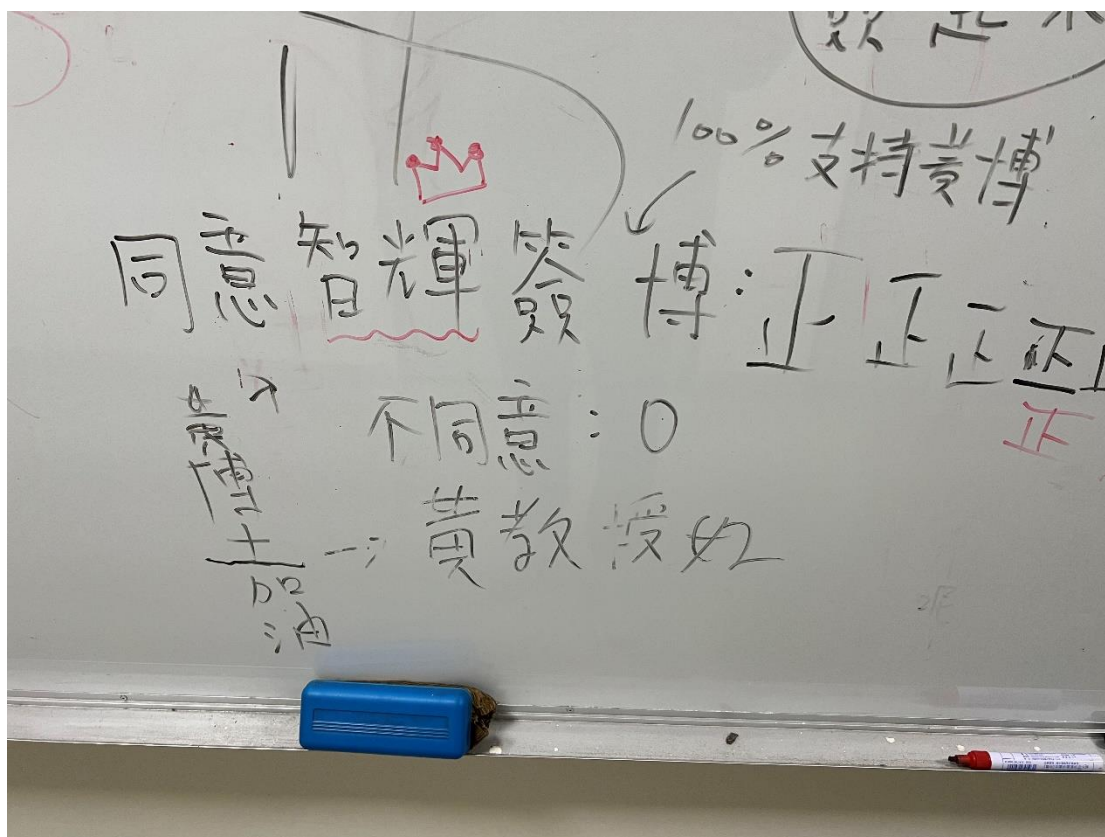 100% 支持黃博
同意智輝簽博：正正正正
正
不同意：0
黃博士
加油
→ 黃教授